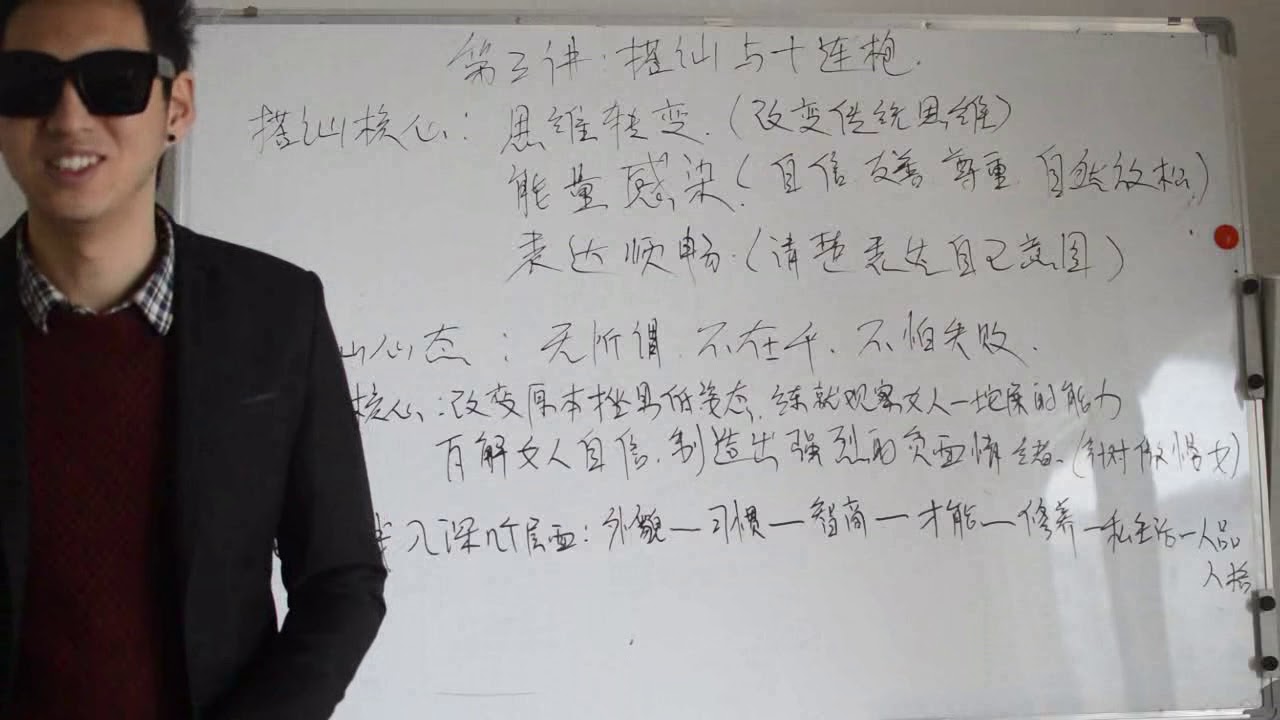 第三讲:搭讪与十连枪.
搭讪核心:思维转变.(改变传统思维)
能量感染(自信 友善 尊重 自然放松)
表达顺畅.(清楚表达自己意图)
讪心态:无所谓.不在乎.不怕失败.
核心:改变原本 低姿态.练就观察女人一 的能力
瓦解女人自信.制造出强烈的负面情绪.(针对傲慢女)
入深 个层面:外貌—习惯—智商—才能—修养—私生活—人品
人格